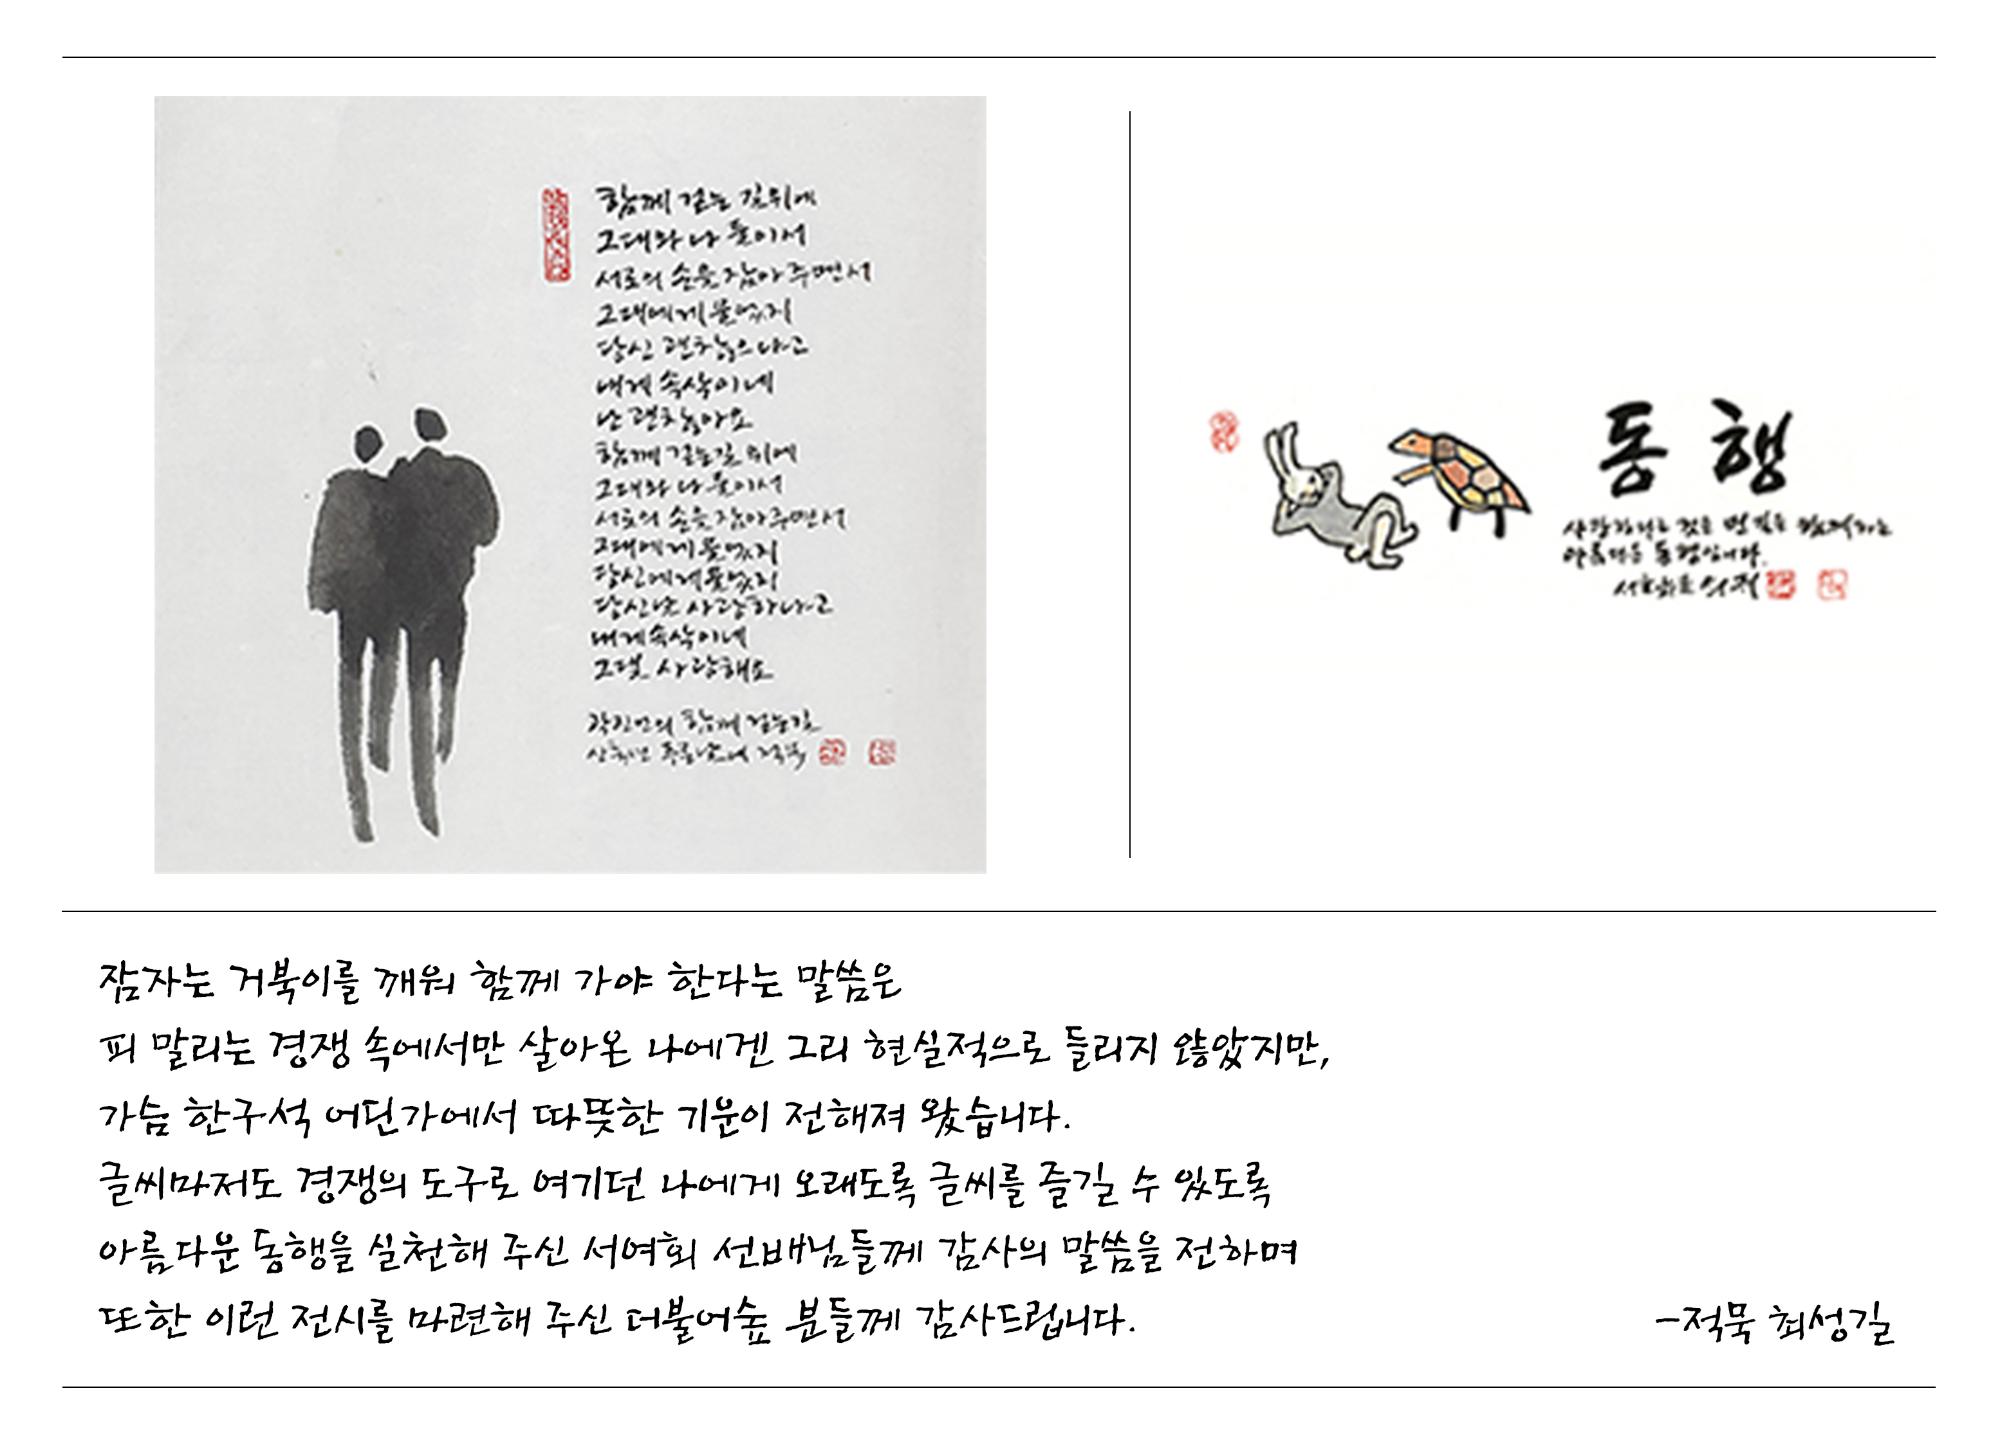 함께 걷는 길위에
그대와 나 둘이서
서로의 손을 잡아 주면서
그대에게 물었지
당신 괜찮으냐고
내게 속삭이네
난 괜찮아요
함께 걷는길 위에
그대와 나 둘이서
서로의 손을 잡아주면서
그대에게 물었지
당신에게 물었지
당신날 사랑하냐고
내게 속삭이네
그댈 사랑해요
의 함께 걷는길
동행
먼 길을
아름다운 동행입니다.
잠자는 거북이를 깨워 함께 가야 한다는 말씀은
피 말리는 경쟁 속에서만 살아온 나에겐 그리 현실적으로 들리지 않았지만,
가슴 한구석 어딘가에서 따뜻한 기운이 전해져 왔습니다.
글씨마저도 경쟁의 도구로 여기던 나에게 오래도록 글씨를 즐길 수 있도록
아름다운 동행을 실천해 주신 서여회 선배님들께 감사의 말씀을 전하며
또한 이런 전시를 마련해 주신 더불어숲 분들께 감사드립니다.
-적묵 최성길